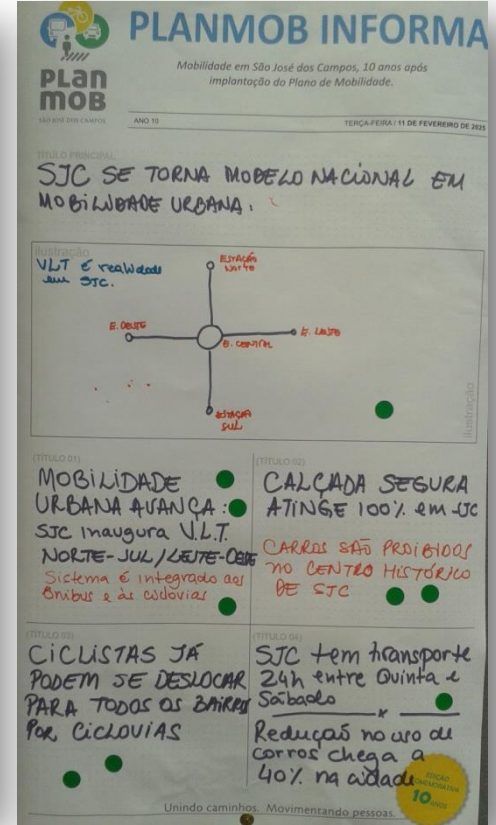 PLANMOB INFORMA
Mobilidade em São José dos Campos, 10 anos após
implantação do Plano de Mobilidade.
PLAN
MOB
SÃO JOSÉ DOS CAMPOS
ANO 10
TERÇA-FEIRA / 11 DE FEVEREIRO DE 2025
TÍTULO PRINCIPAL
SJC SE TORNA MODELO NACIONAL EM
MOBILIDADE URBANA.
ilustração
VLT É realidade
em SJC.
ESTAÇÃO
NORTE
E. OESTE
E. CENTRAL
E. LESTE
ESTAÇÃO
SUL
ilustração
(TÍTULO 01)
MOBILIDADE
URBANA AVANÇA:
SJC inaugura V.L.T.
NORTE-SUL/LESTE-OESTE
Sistema é integrado aos
ônibus e às ciclovias
(TÍTULO 02)
CALÇADA SEGURA
ATINGE 100% em SJC
CARROS SÃO PROIBIDOS
NO CENTRO HISTÓRICO
DE SJC
(TÍTULO 03)
CICLISTAS JÁ
PODEM SE DESLOCAR
PARA TODOS OS BAIRROS
POR CICLOVIAS
(TÍTULO 04)
SJC tem transporte
24h entre Quinta e
Sábado
Redução no uso de
carros chega a
40% na cidade
EDIÇÃO
COMEMORATIVA
10 ANOS
Unindo caminhos. Movimentando pessoas.